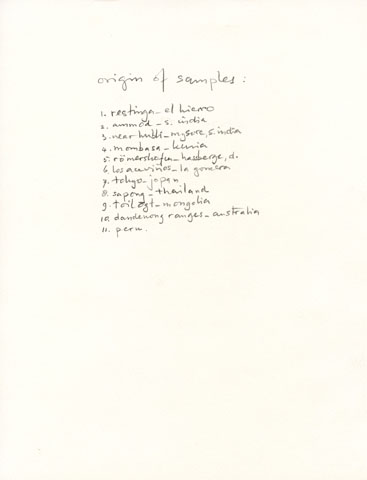 origin of samples:
1. restinga - el hierro
2. - s. india
3. near hubli - mysore, s. india
4. mombasa - kenia
5. römershofen - hassberge, d.
6. los aceviños - la gomera
7. tokyo - japan
8. sapong - thailand
9. - mongolia
10. dandenong ranges - australia
11. peru.